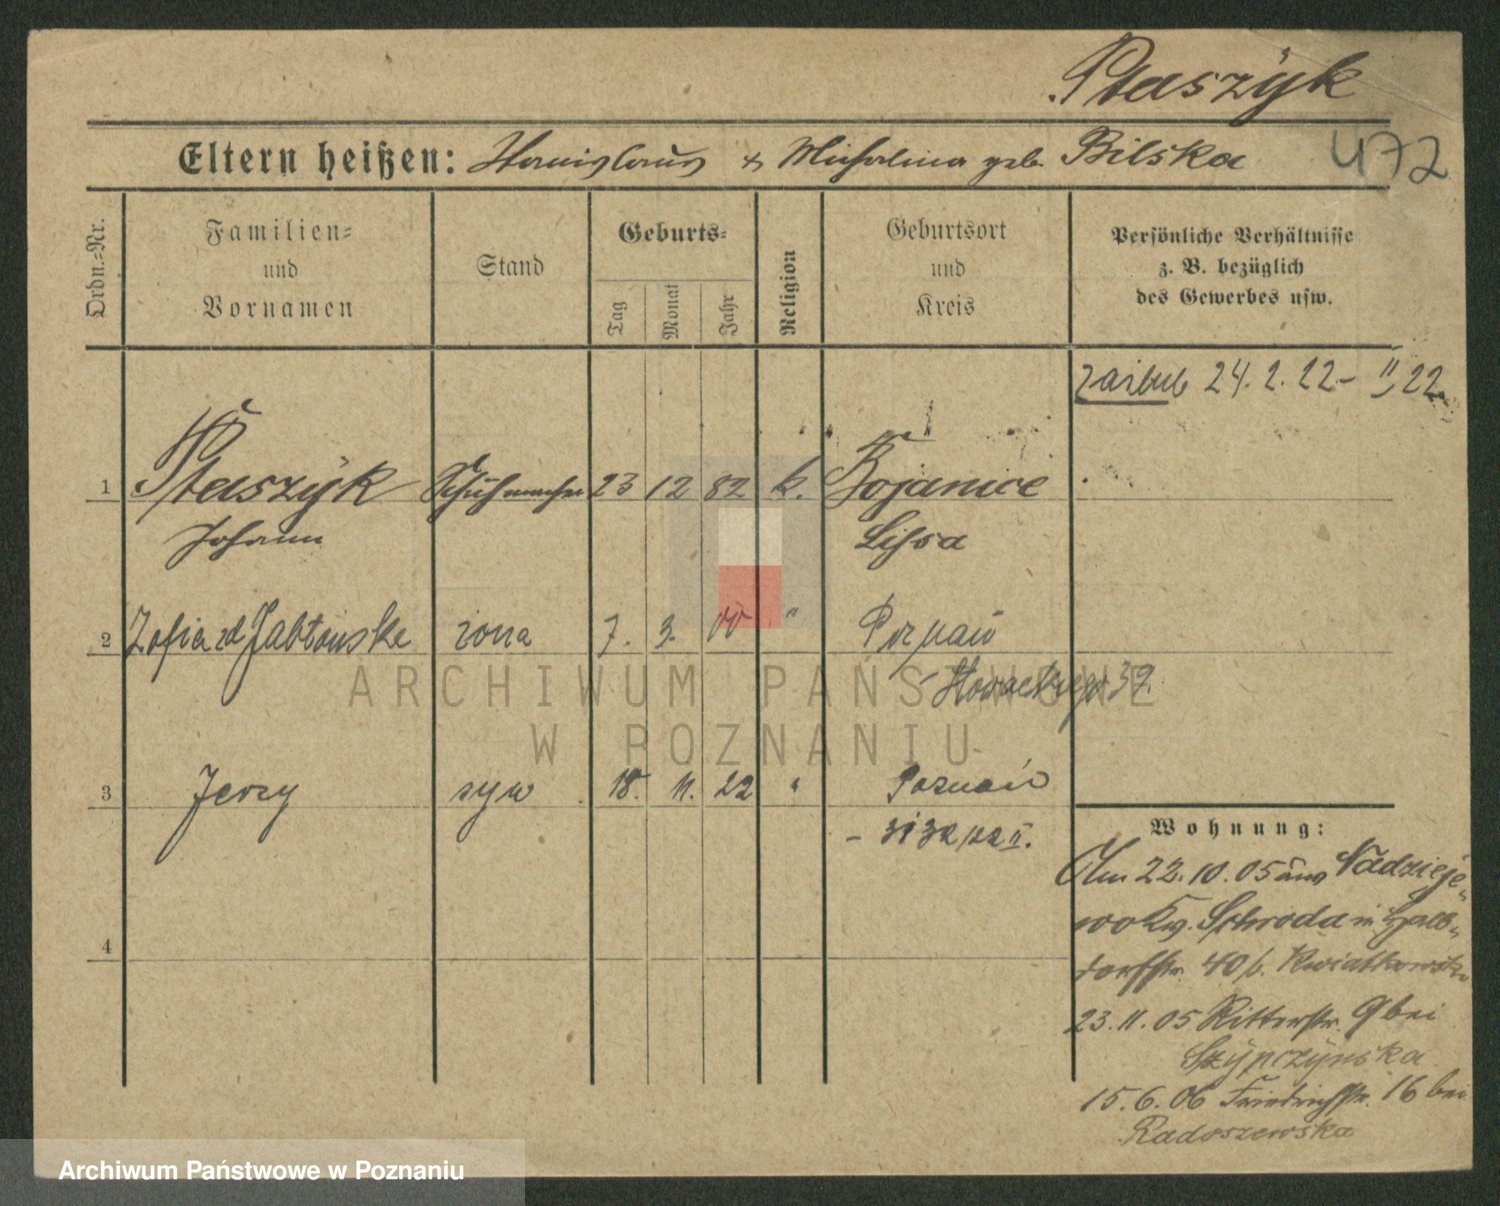 Ptaszyk
Eltern heißen: Stanislaus & Michalina geb. Bilska
472
Ordn.-Nr.
Familien-
und
Vornamen
Stand
Geburts-
Tag
Monat
Jahr
Religion
Geburtsort
und
Kreis
Persönliche Verhältnisse
z. B. bezüglich
des Gewerbes usw.
24. 2. 22 - II 22
1 Ptaszyk Schuhmacher 23 12 82 k. Bojanice
Johann Lissa
2 Zofia zd Jabłońska żona 7. 3. 00 " Poznań
Słowackiego 39
3 Jerzy syn 18. 11. 22 " Poznań
- 3132/22 II.
4
Wohnung:
Am 22. 10. 05 aus Nadzieje-
wo Kr. Schroda in Halb-
dorfstr. 40 b. Kwiatkowska
23. 11. 05 Ritterstr. 9 bei
Szypczynska
15. 6. 06 Friedrichstr. 16 bei
Radoszewska
ARCHIWUM PAŃSTWOWE
W POZNANIU
Archiwum Państwowe w Poznaniu